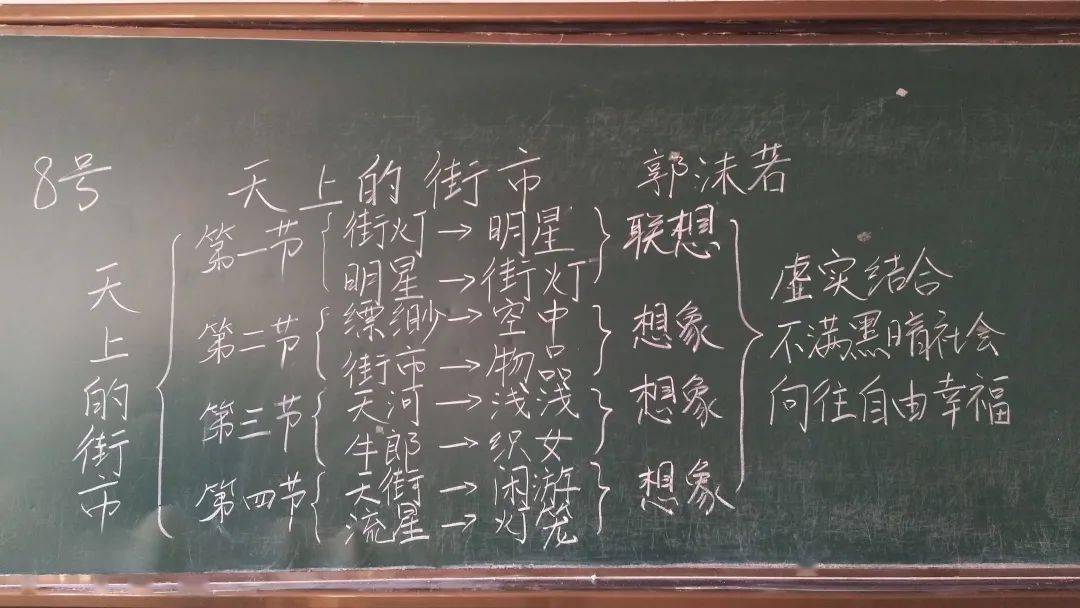 8号 天上的街市 郭沫若
天上的街市
第一节 街灯→明星 联想
明星→街灯
第二节 缥缈→空中 想象
街市→物品
第三节 天河→浅浅 想象
牛郎→织女
第四节 天街→闲游 想象
流星→灯笼
虚实结合
不满黑暗社会
向往自由幸福